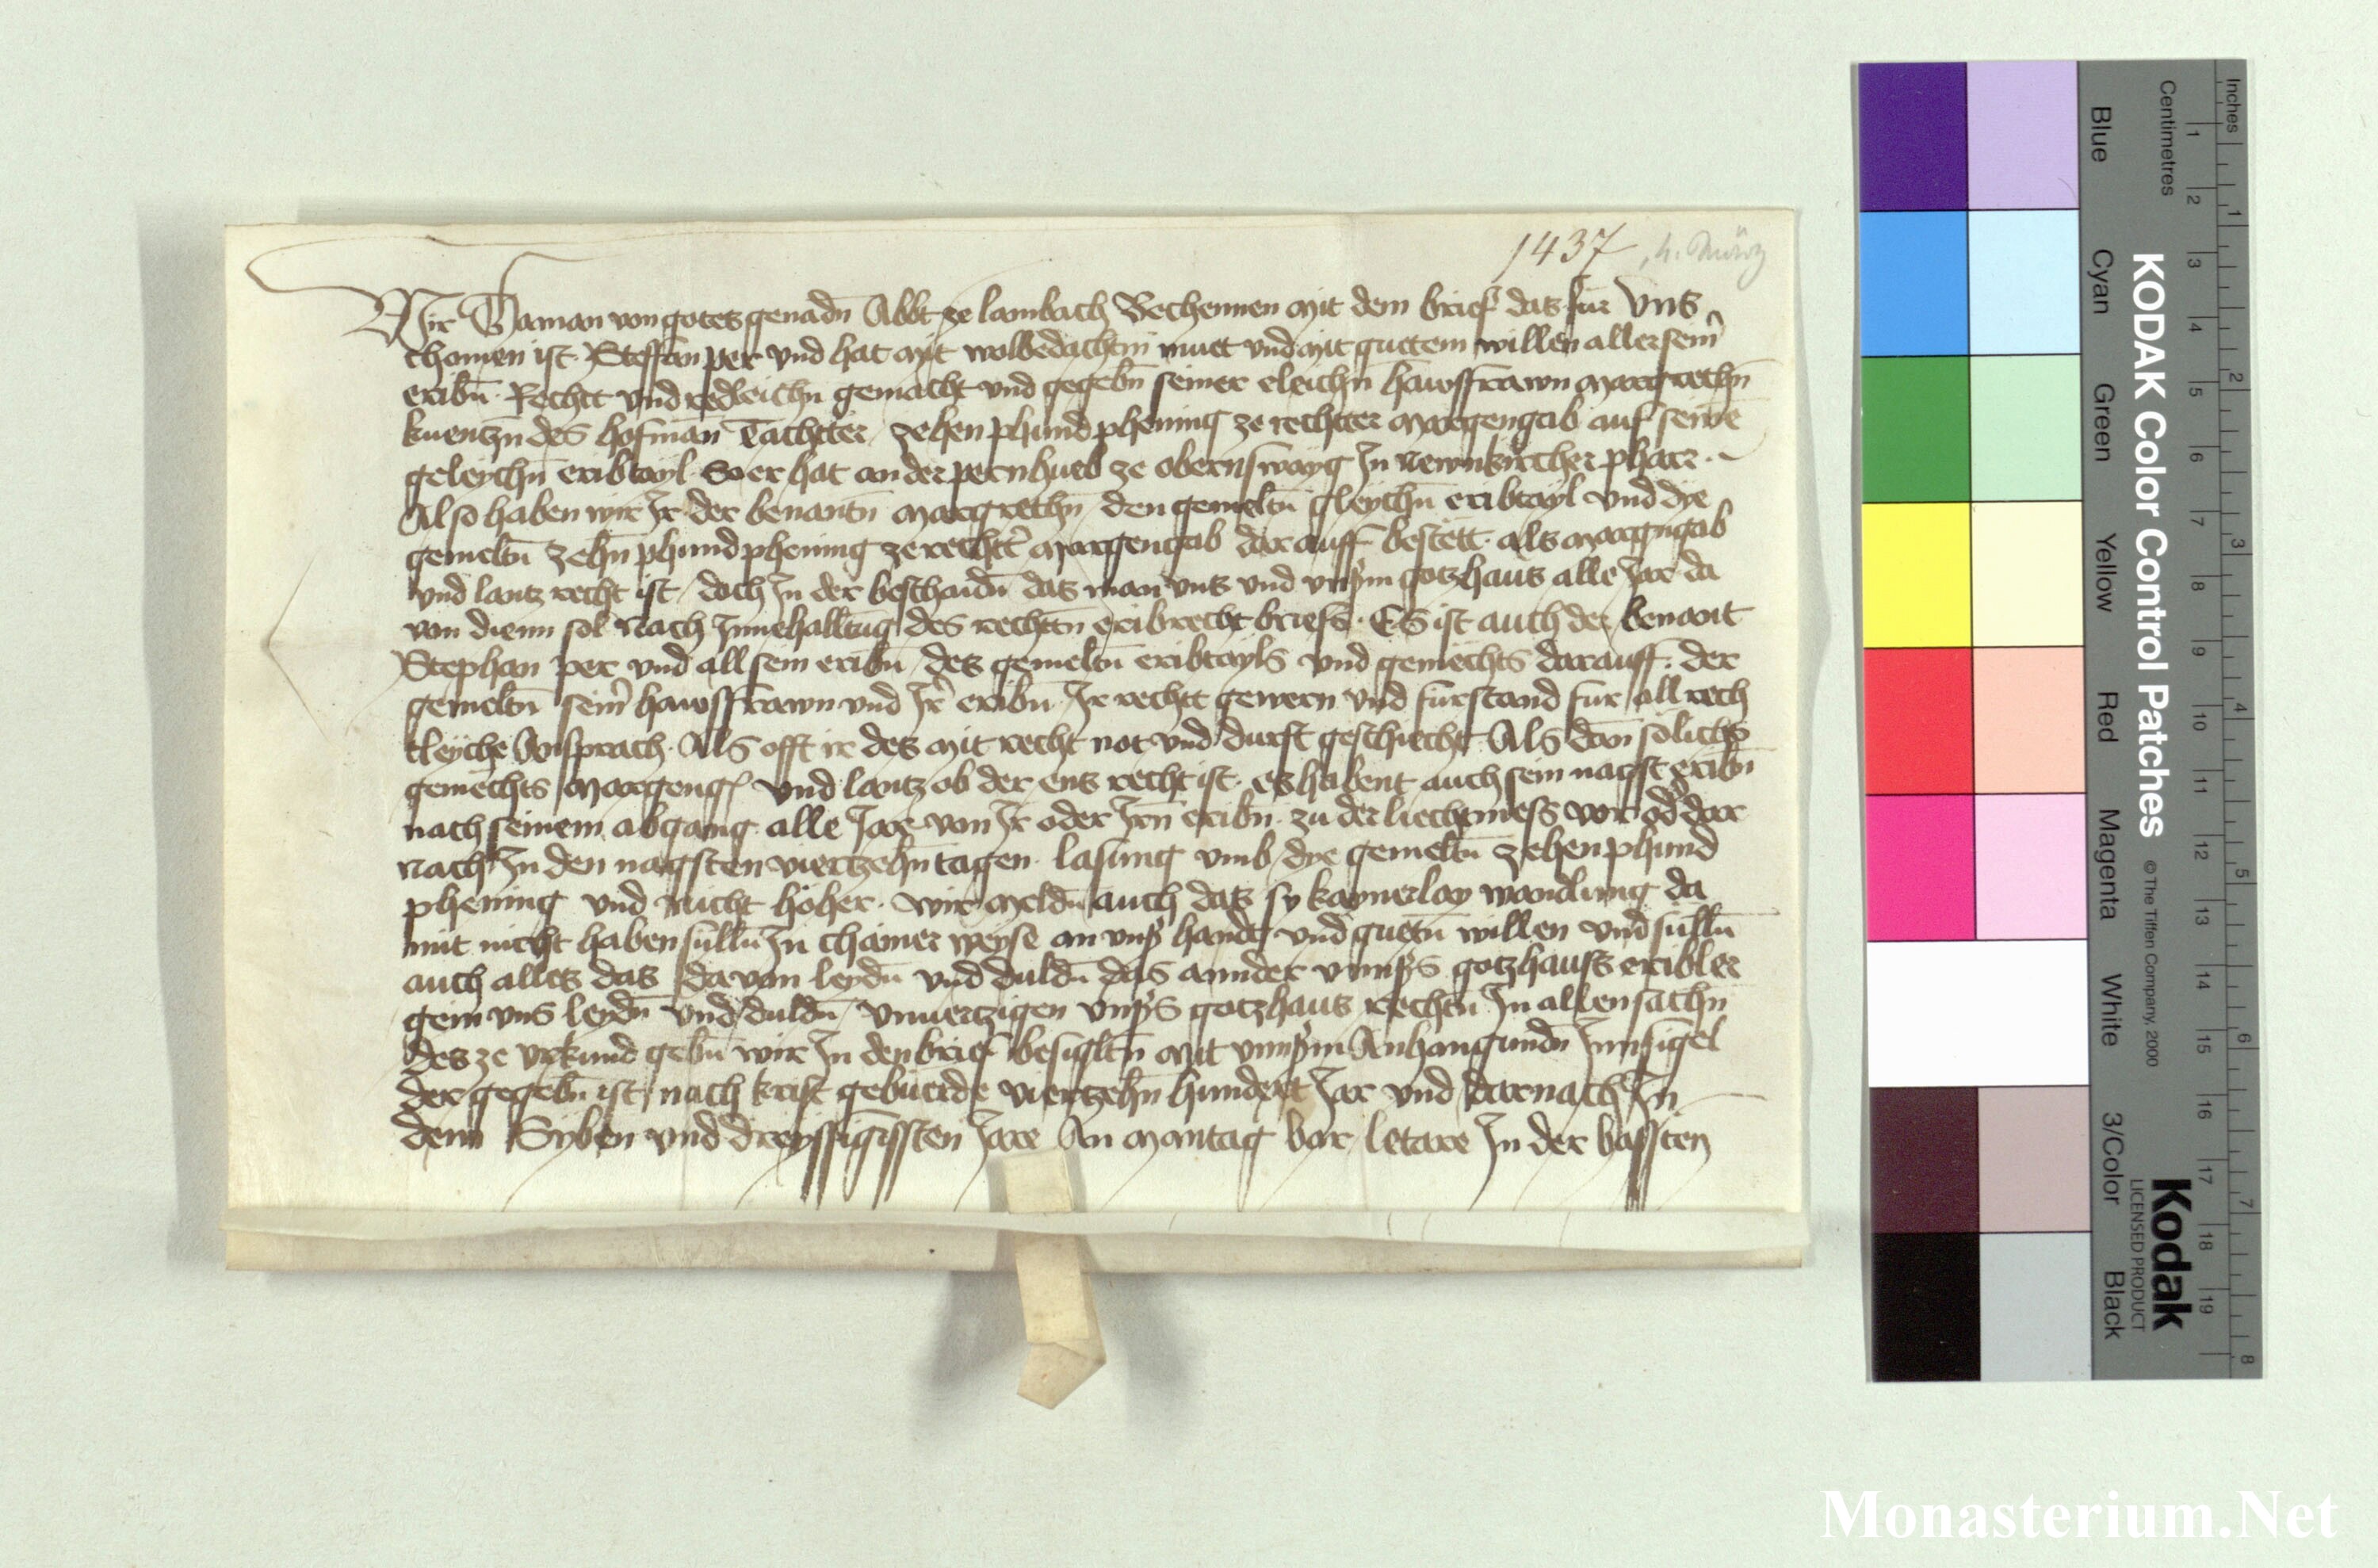 1437, 4. März
Wir Thaman von gotes genadn̄ Abbt ze lambach Bechennen Mit dem brief das fur vns
chomen ist Steffan per vnd hat Mit wolbedachtm̄ muet vnd Mit guetem willen aller sein̄
eribn̄ Rechtt vnd redleichn̄ gemacht vnd gegebn̄ seiner eleichn̄ hawsfrawn Margrethn̄
kuentzn̄ des hofman Tachtter zehen phund phening ze rechtter Margengab auf seinē
geleychn̄ eribtayl So er hat an der pernhueb ze obernswayg In Newnkircher pharr
Also haben wir Ir der benantn̄ Margrethn̄ den gemeltn̄ gleychn̄ eribtayl vnd dye
gemeltn̄ zehn̄ phund phening ze rechttr̄ Margengab darauff bestett als Margngab
vnd lantz recht ist / doch In der beschaidn̄ das man vns vnd vnserm gotzhaus alle Jar da
von dienn sol Nach Innehalltūg des rechtn̄ eribrecht briefs. Es ist auch der benant
Stephan per vnd all sein eribn̄ / des gemeltn̄ eribtayls vnd gemechts darauff. der
gemeltn̄ sein̄ hawsfrawn vnd Ir̄ eribn̄ Ir rechtt gewern vnd furstand fur all rech
tleyche Ansprach. Als offt ir des Mit recht not vnd durft geschiecht Als dan̄ solichs
gemechts Margeng vnd lantz ob der ens recht ist. es habent auch sein nagst eribn̄
nach seinem abgang alle Jar von Ir oder Irn̄ eribn̄ zu der liechtmess vor od̄ dar
Nach In den nagsten viertzehn̄ tagen lasung vmb dye gemeltn̄ zehen phund
phening vnd nicht hoher. wir Meldn̄ auch das sy kaynerlay wandlung da
mit nicht haben sulln̄ In chainer weyse an vnser handt vnd guetn̄ willen vnd sulln̄
auch alles das da von leydn̄ vnd duldn̄ das annder vnnsers gotzhauss eribler
gein vns leydn̄ vnd duldn̄ / vnuertzigen vnsers gotzhaus rechtn̄ In allen sachn̄
des ze vrkund gebn̄ wir In den brief besigltn̄ Mit vnnserm Anhangundn̄ Innsigel
der gegebn̄ ist nach krist gebuerde viertzehn̄ hundert Jar vnd darnach In
dem Syben vnd dreyssigissten Jare An Montag vor letare In der vassten
Inches
Centimetres
1 2 3 4 5 6 7 8
1 2 3 4 5 6 7 8 9 10 11 12 13 14 15 16 17 18 19
KODAK Color Control Patches
© The Tiffen Company, 2000
Kodak
LICENSED PRODUCT
Blue
Cyan
Green
Yellow
Red
Magenta
White
3/Color
Black
Monasterium.Net